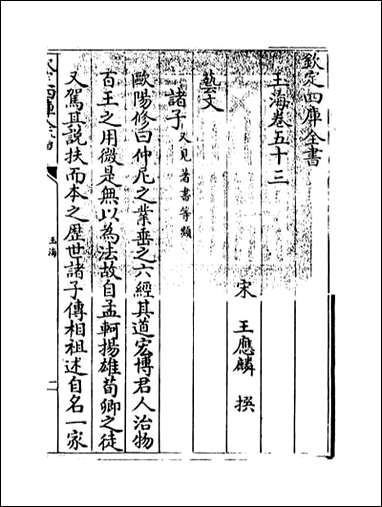 欽定四庫全書
玉海卷五十三
宋 王應麟 撰
藝文
諸子又見著書等類
歐陽修曰仲尼之業垂之六經其道宏博君人治物
百王之用微是無以為法故自孟軻揚雄荀卿之徒
又駕其說扶而本之歷世諸子傳相祖述自名一家
玉海